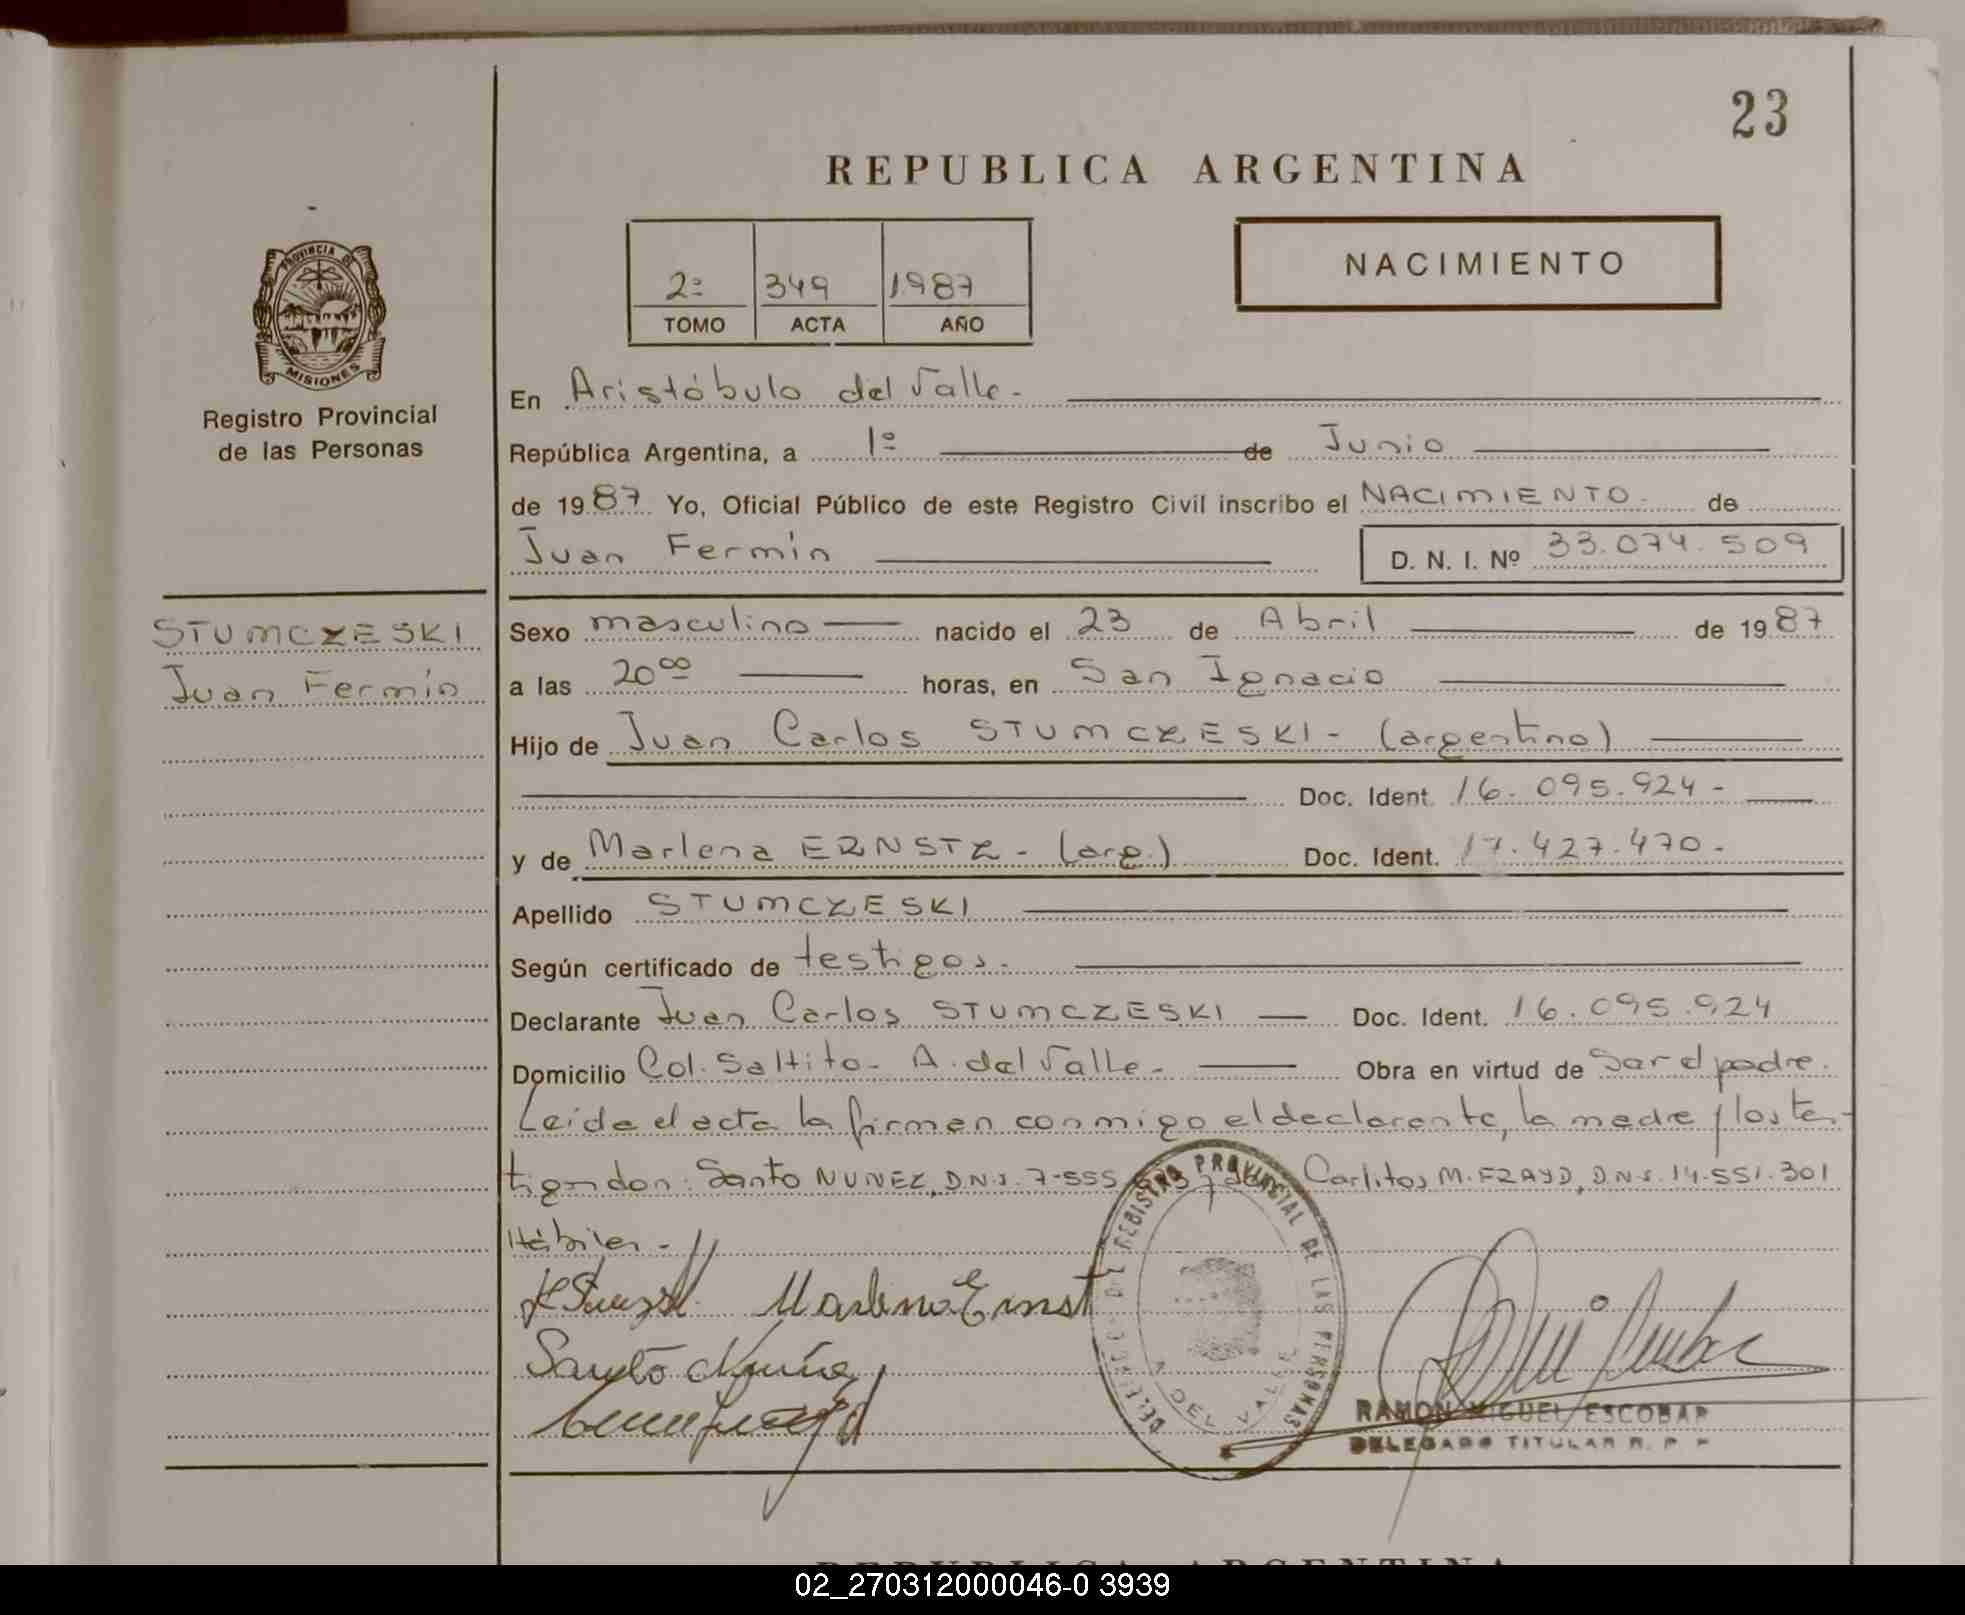 23
REPUBLICA ARGENTINA
2º 349 1987
TOMO ACTA AÑO
NACIMIENTO
PROVINCIA DE
MISIONES
Registro Provincial
de las Personas
En Aristóbulo del Valle.
República Argentina, a 1º de Junio
de 1987 Yo, Oficial Público de este Registro Civil inscribo el NACIMIENTO. de
Juan Fermín D. N. I. Nº 33.074.509
STUMCZESKI
Juan Fermín
Sexo masculino nacido el 23 de Abril de 1987
a las 20ºº horas, en San Ignacio
Hijo de Juan Carlos STUMCZESKI - (argentino)
Doc. Ident. 16.095.924 -
y de Marlena ERNSTZ - (arg.) Doc. Ident. 17.427.470 -
Apellido STUMCZESKI
Según certificado de testigos.
Declarante Juan Carlos STUMCZESKI Doc. Ident. 16.095.924
Domicilio Col. Saltito - A. del Valle - Obra en virtud de ser el padre.
Leida el acta la firman conmigo el declarante, la madre y los tes-
tigos don: Santo NUNEZ, D.N.I. 7.555 y don Carlitos M. FRAYD, D.N.I. 14.551.301
Hábiles -
Marlena Ernst
Santo Nuñez
DELEGADO DEL REGISTRO PROVINCIAL DE LAS PERSONAS
A. DEL VALLE
RAMON MIGUEL ESCOBAR
DELEGADO TITULAR R. P. P.
REPUBLICA ARGENTINA
02_270312000046-0 3939